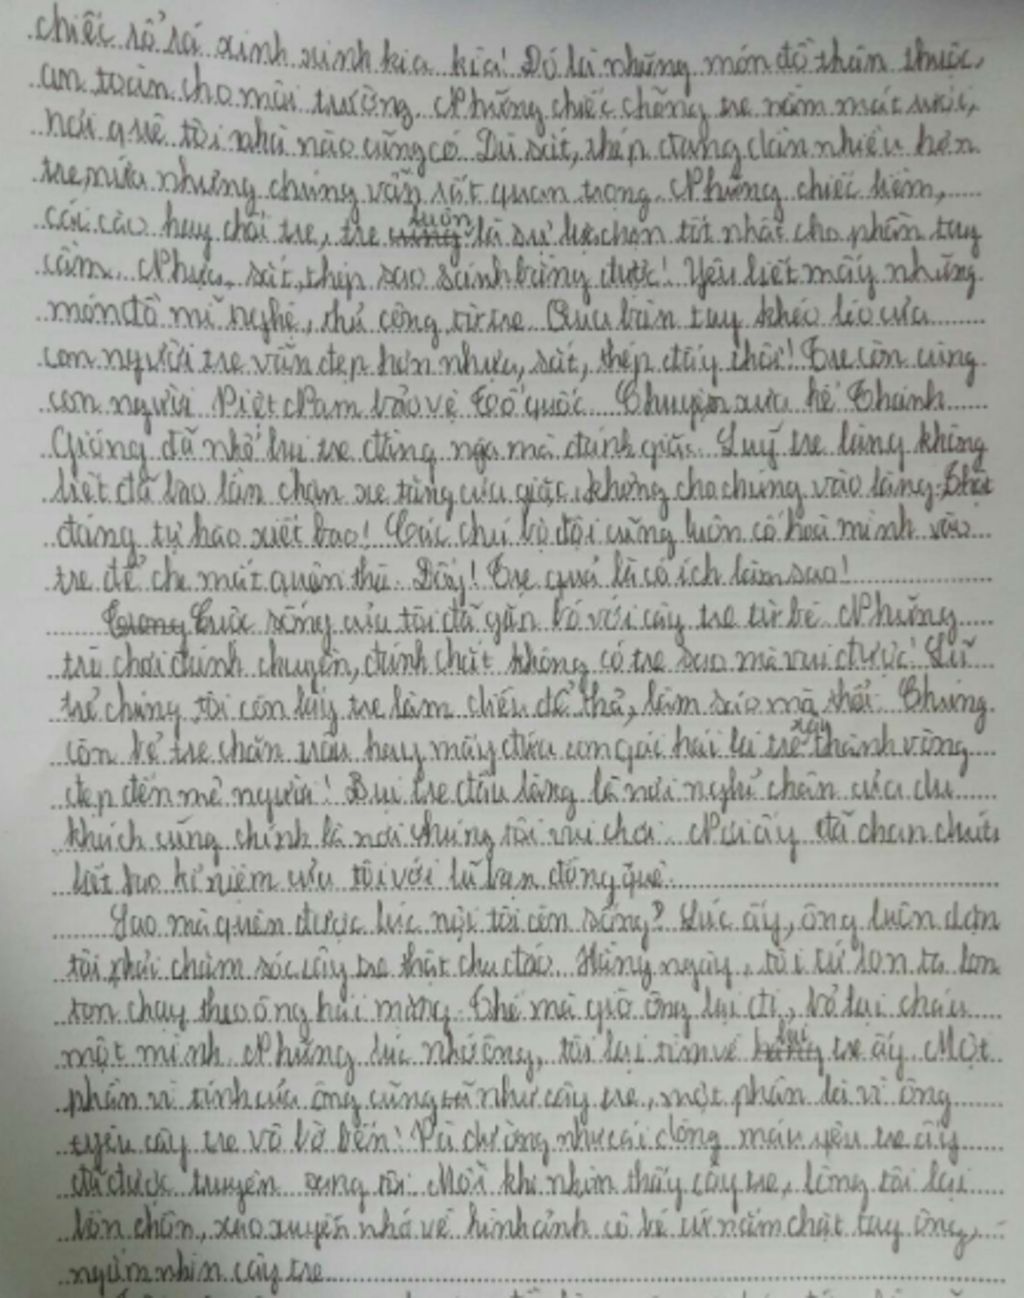 chiếc rổ rá xinh xinh kia kìa! Đó là những món đồ thân thuộc,
an toàn cho môi trường. Những chiếc chõng tre nằm mát rượi,
nơi quê tôi nhà nào cũng có. Dù sắt, thép đang dần nhiều hơn
tre, nứa nhưng chúng vẫn rất quan trọng. Những chiếc liềm,
cái cào hay chổi tre, tre luôn là sự lựa chọn tốt nhất cho phần tay
cầm. Nhựa, sắt, thép sao sánh bằng được! Yêu biết mấy những
món đồ mĩ nghệ, thủ công từ tre. Qua bàn tay khéo léo của
con người tre vẫn đẹp hơn nhựa, sắt, thép đấy thôi! Tre còn cùng
con người Việt Nam bảo vệ Tổ quốc. Chuyện xưa kể Thánh
Gióng đã nhổ bụi tre đằng ngà mà đánh giặc. Luỹ tre làng không
biết đã bao lần chặn xe tăng của giặc, không cho chúng vào làng. Thật
đáng tự hào xiết bao! Các chú bộ đội cũng luôn cố hoà mình vào
tre để che mắt quân thù. Đấy! Tre quả là có ích làm sao!
Trong Cuộc sống của tôi đã gắn bó với cây tre từ bé. Những
trò chơi đánh chuyền, đánh chắt không có tre sao mà vui được! Lũ
trẻ chúng tôi còn lấy tre làm diều để thả, làm sáo mà thổi. Chúng
còn bẻ tre chăn trâu hay mấy đứa con gái hái lá tre xây thành vòng
đẹp đến mê người! Bụi tre đầu làng là nơi nghỉ chân của du
khách cũng chính là nơi chúng tôi vui chơi. Nơi ấy đã chan chứa
biết bao kỉ niệm của tôi với lũ bạn đồng quê.
Sao mà quên được lúc nội tôi còn sống? Lúc ấy, ông luôn dặn
tôi phải chăm sóc cây tre thật chu đáo. Hằng ngày, tôi cứ lon ta lon
ton chạy theo ông hái măng. Thế mà giờ ông lại đi, bỏ lại cháu
một mình. Những lúc nhớ ông, tôi lại tìm về bụi tre ấy. Một
phần vì tính của ông cũng như cây tre, một phần là vì ông
yêu cây tre vô bờ bến! Và dường như cái dòng máu yêu tre ấy
đã được truyền sang tôi. Mỗi khi nhìn thấy cây tre, lòng tôi lại
bồn chồn, xao xuyến nhớ về hình ảnh cô bé cứ nắm chặt tay ông,
ngắm nhìn cây tre